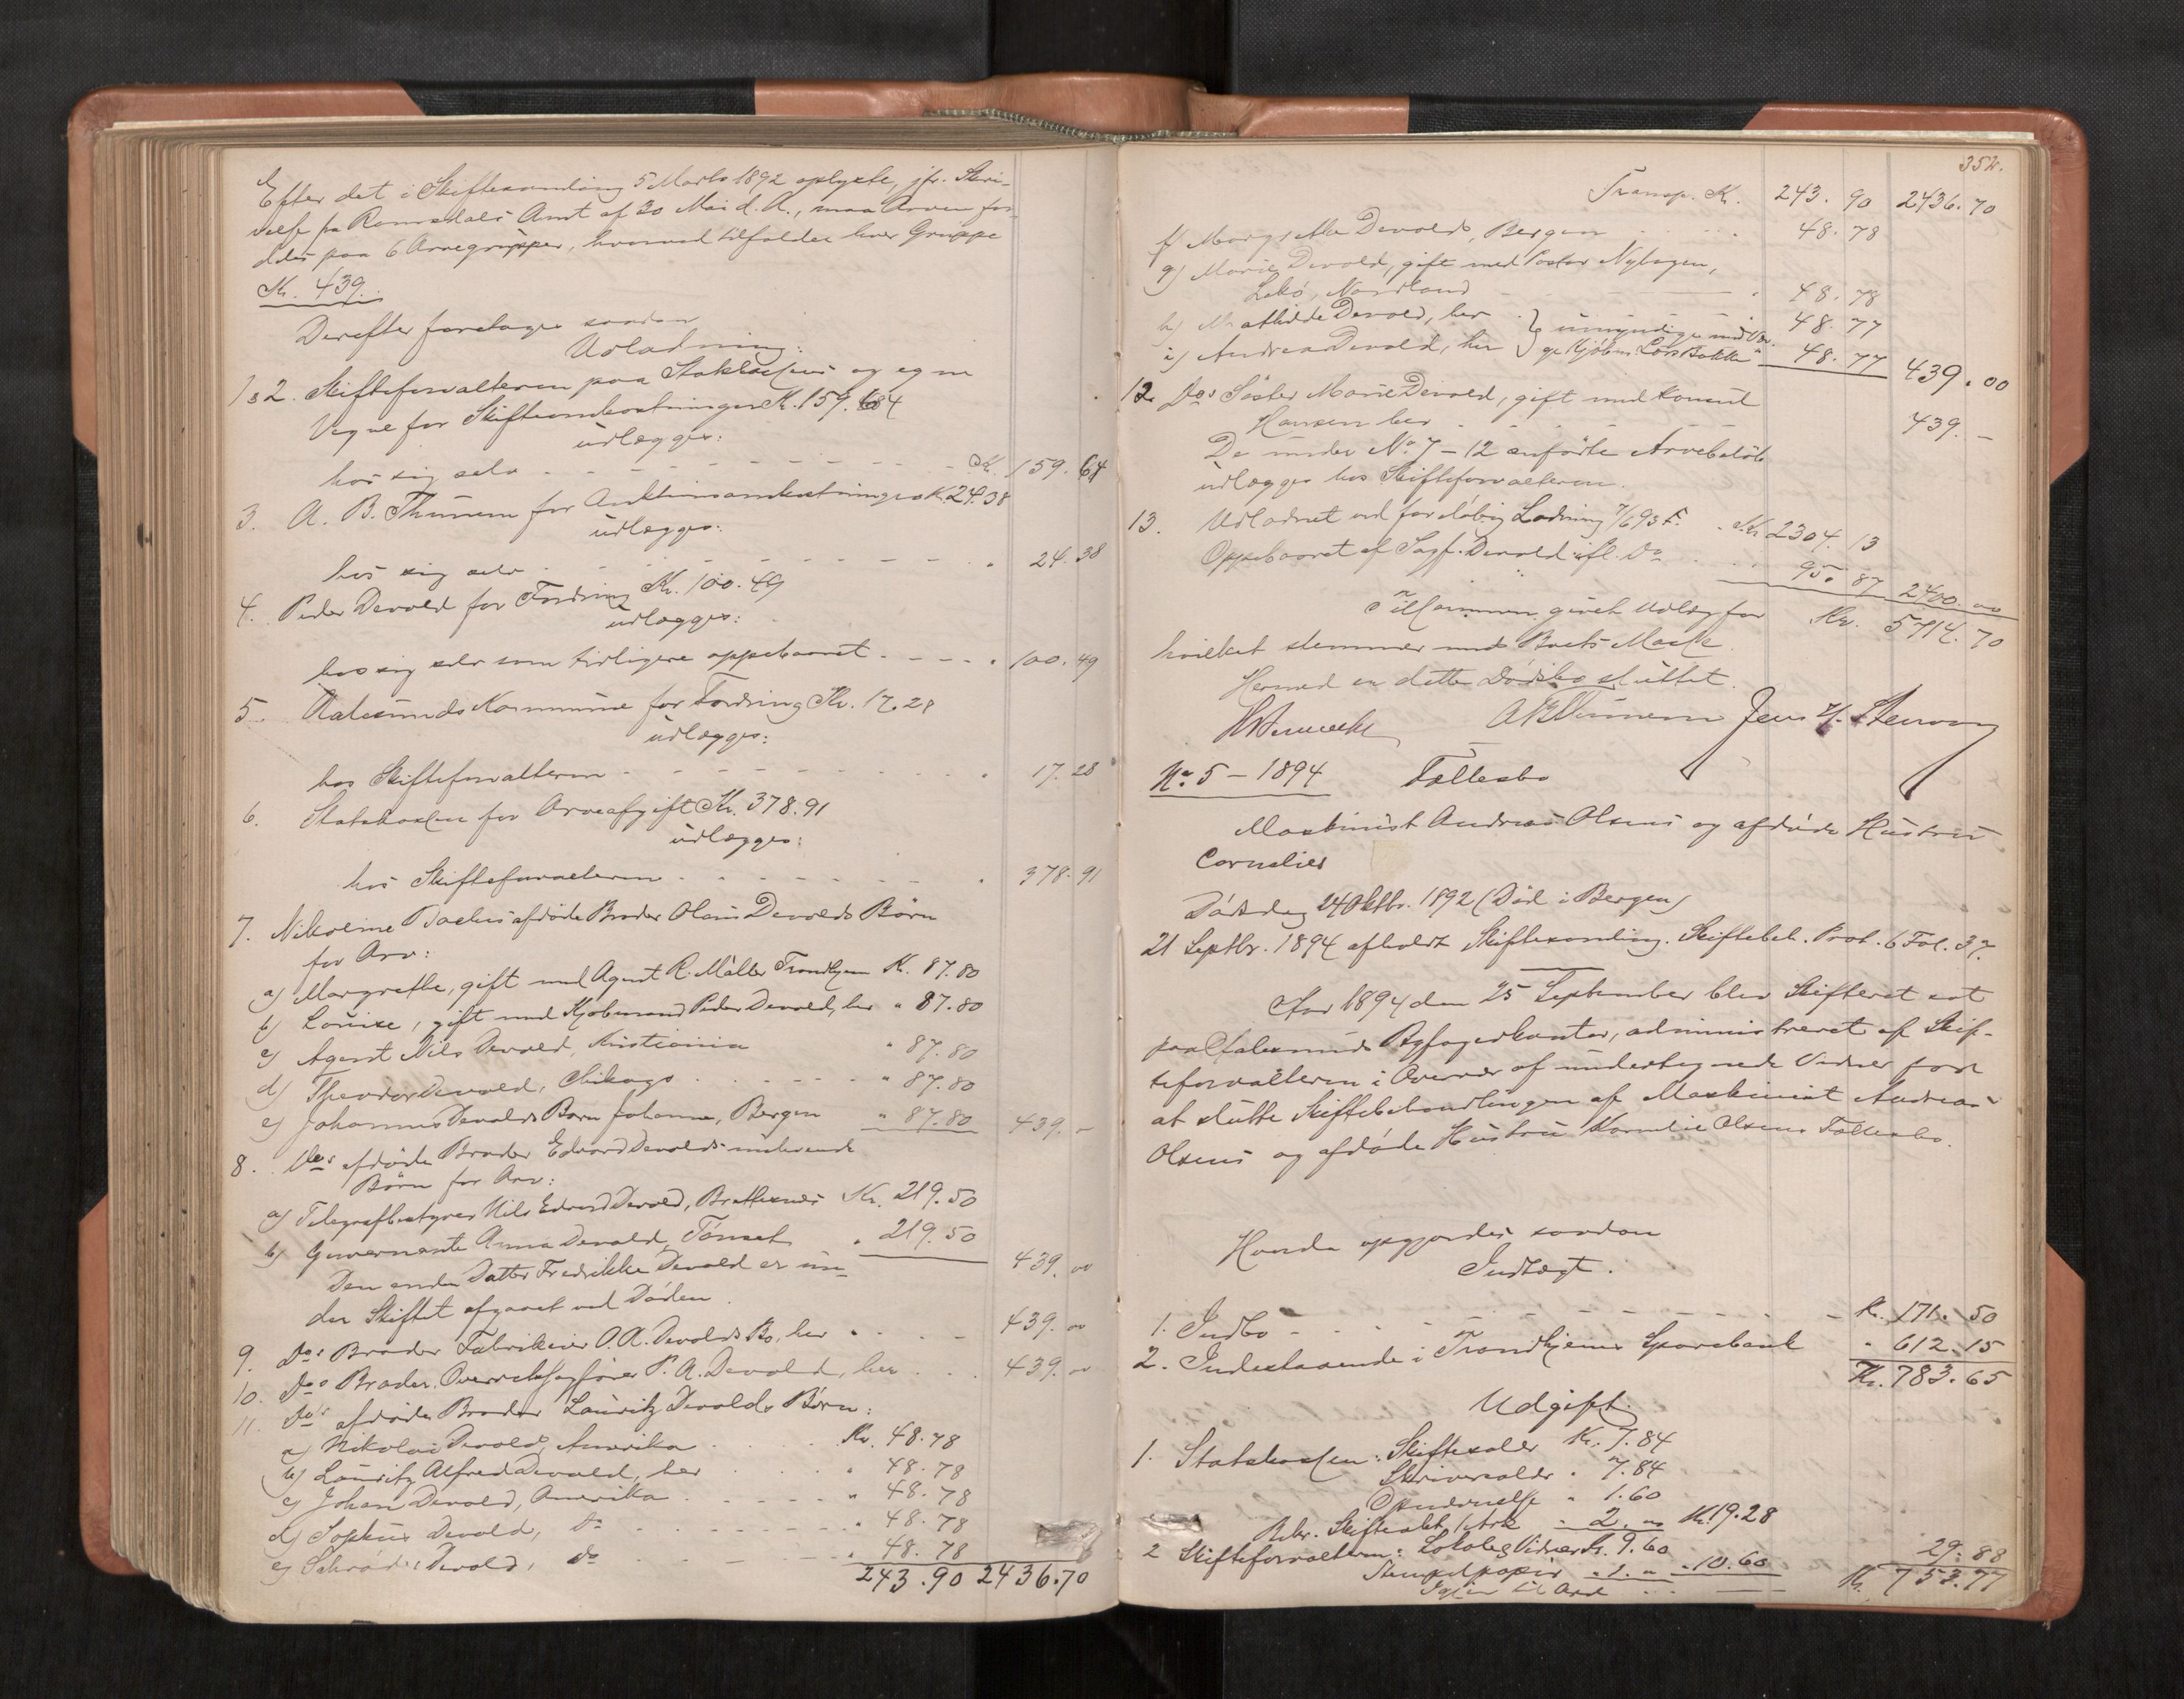 Efter det i Skiftesamling 5 Marts 1892 oplyste, jfr. Skri-
velse fra Romsdals Amt af 30 Mai d. A., maa Arven for-
deles paa 6 Arvegrupper, hvorved tilfalder hver Gruppe
Kr. 439.
Derefter foretages saadan
Udlodning:
1 & 2. Skifteforvalteren paa Statskassens og egne
Vegne for Skifteomkostninger Kr. 159.64
udlægges:
hos sig selv Kr. 159.64
3. A. B. Thunem for Auktionsomkostninger Kr. 24.38
udlægges:
hos sig selv 24.38
4. Peder Devold for Fordring Kr. 100.49
udlægges:
hos sig selv som tidligere oppebaaret 100.49
5. Aalesunds Kommune for Fordring Kr. 17.28
udlægges:
hos Skifteforvalteren 17.28
6. Statskassen for Arveafgift Kr. 378.91
udlægges:
hos Skifteforvalteren 378.91
7. Nikoline afdøde Broder Olaus Devolds Børn
for Arv:
a) Margrethe, gift med Agent R. Møller Trondhjem Kr. 87.80
b) Louise, gift med Kjøbmand Peder Devold, her " 87.80
c) Agent Nils Devold, Kristiania " 87.80
d) Theodor Devold, Chikago " 87.80
e) Johannes Devolds Barn Johanne, Bergen " 87.80 439.–
8. Dos afdøde Broder Edvard Devolds
Børn for Arv:
a) Telegrafbestyrer Nils Edvard Devold, Brettesnes Kr. 219.50
b) Guvernante Anna Devold, Tønset " 219.50
439.00
Den anden Datter Fredrikke Devold er un-
der Skiftet afgaaet ved Døden.
9. Dos Broder Fabrikeier O. A. Devolds Bo, her 439.00
10. Dos Broder Overretssagfører P. A. Devold, her 439.00
11. Dos afdøde Broder Lauritz Devolds Børn:
a) Nikolai Devold, Amerika Kr. 48.78
b) Lauritz Alfred Devold, her " 48.78
c) Johan Devold, Amerika " 48.78
d) Sophus Devold, Do " 48.78
e) Schrøder Devold, do " 48.78
243.90 2436.70
352.
Transp. Kr. 243.90 2436.70
f) Margrethe Devold, Bergen 48.78
g) Marie Devold, gift med Pastor,
Lekø, Nordland 48.78
h) Mathilde Devold, her } umyndige med Vær- 48.77
i) Andrea Devold, her } ge Kjøbm. Lars Bakke 48.77 439.00
12. Dos Søster Marie Devold, gift med Konsul
Hansen her 439.–
De under No 7 – 12 anførte Arvebeløb
udlægges hos Skifteforvalteren.
13. Udlodnet ved foreløbig Lodning 7/6 93 Kr. 2304.13
Oppebaaret af Sagf. Devold ifl. Do 95.87 2400.00
Tilsammen givet Udlæg for Kr. 5714.70
hvilket stemmer med Boets Masse.
Hermed er dette Dødsbo sluttet.
A B Thunem Jens
No 5 – 1894 Fællesbo
Maskinist Andreas Olsens og afdøde Hustru
Cornelies
Dødsdag 24 Oktbr. 1892 (Død i Bergen)
21 Septbr. 1894 afholdt Skiftesamling. Skiftebeh. Prot. 6 Fol. 37.
Aar 1894 den 25 September blev Skifteret sat
paa Aalesunds Byfogedkontor, administreret af Skif-
teforvalteren i Overvær af undertegnede Vidner for
at slutte Skiftebehandlingen af Maskinist Andreas
Olsens og afdøde Hustru Kornelie Olsens Fællesbo.
Hvorda opgjordes saadan
Indtægt:
1. Indbo Kr. 171.50
2. Indestaaende i Trondhjems Sparebank " 612.15
Kr. 783.65
Udgift.
1. Statskassen: Skiftesaler Kr. 7.84
Skriversaler " 7.84
Opnævnelse " 1.60
Bebr. Skifteakt, 1 Ark " 2.00 Kr. 19.28
2 Skifteforvalteren: Lokale & Vidner Kr. 9.60
Stempelpapir " 1. " " 10.60 29.88
Igjen til Arv Kr. 753.77